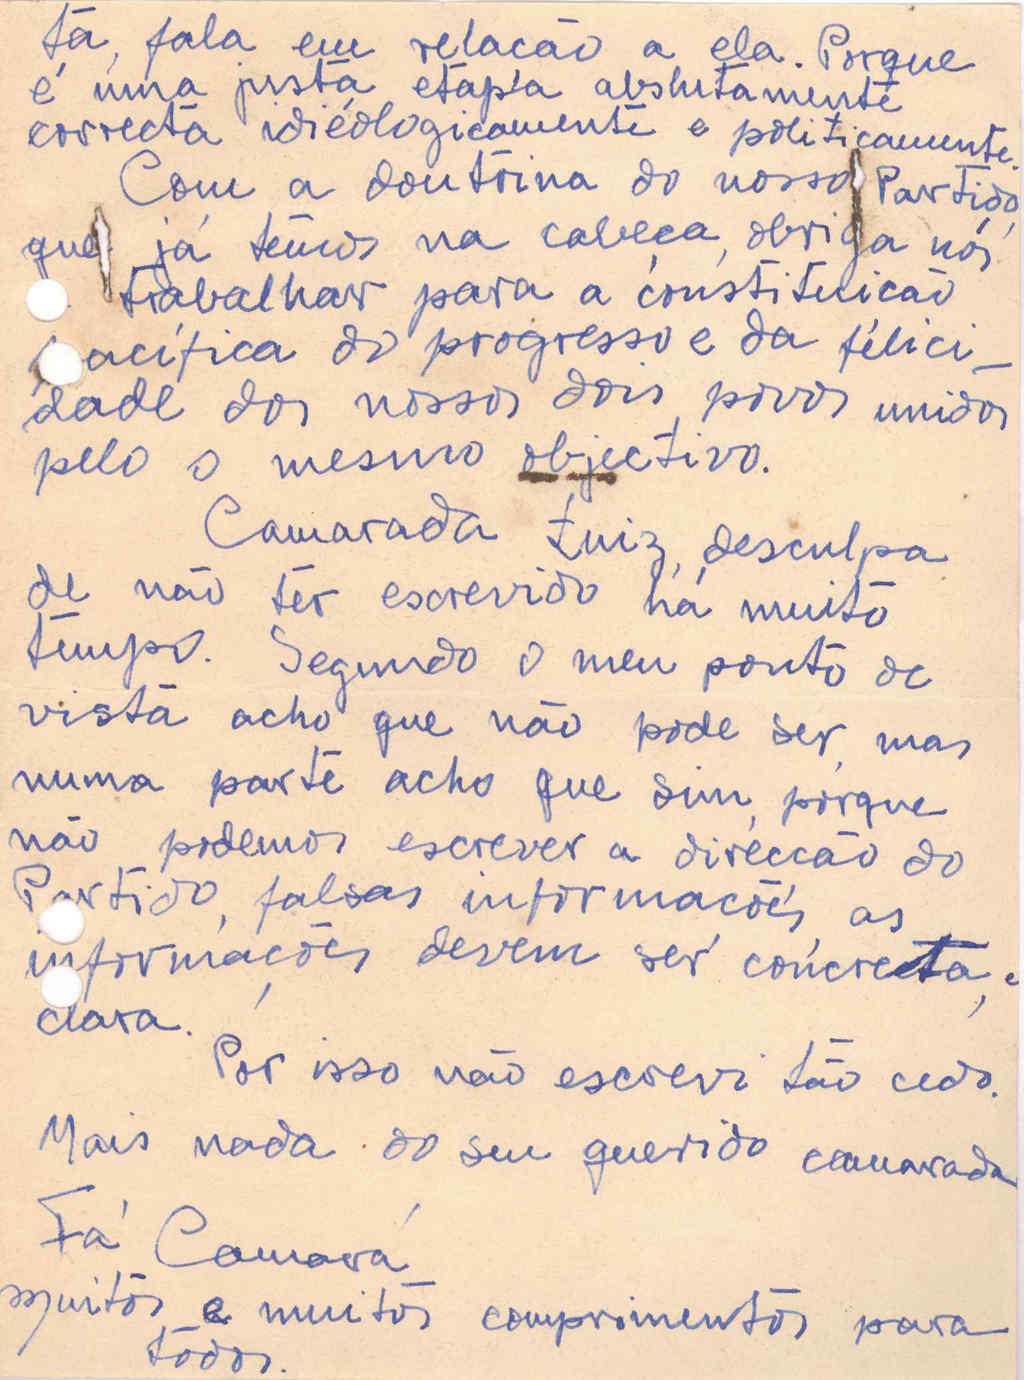 ta, fala em relacão a ela. Porque
é uma justa, etapa abslutamente
correcta idiéologicamente e politicamente.
Com a doutrina do nosso Partido,
que já temos na cabeça, obriga nós
trabalhar para a constituicão
pacífica do progresso e da felici-
dade dos nossos dois povos unidos
pelo o mesmo objectivo.
Camarada Luiz, desculpa
de não ter escrevido há muito
tempo. Segundo o meu ponto de
vista acho que não pode ser, mas
numa parte acho que sim, porque
não podemos escrever a direccão do
Partido, falsas informacões, as
informações devem ser concrecta, e
clara.
Por isso não escrevi tão cedo.
Mais nada do seu querido camarada
Fá Camará
Muitos e muitos comprimentos para
todos.